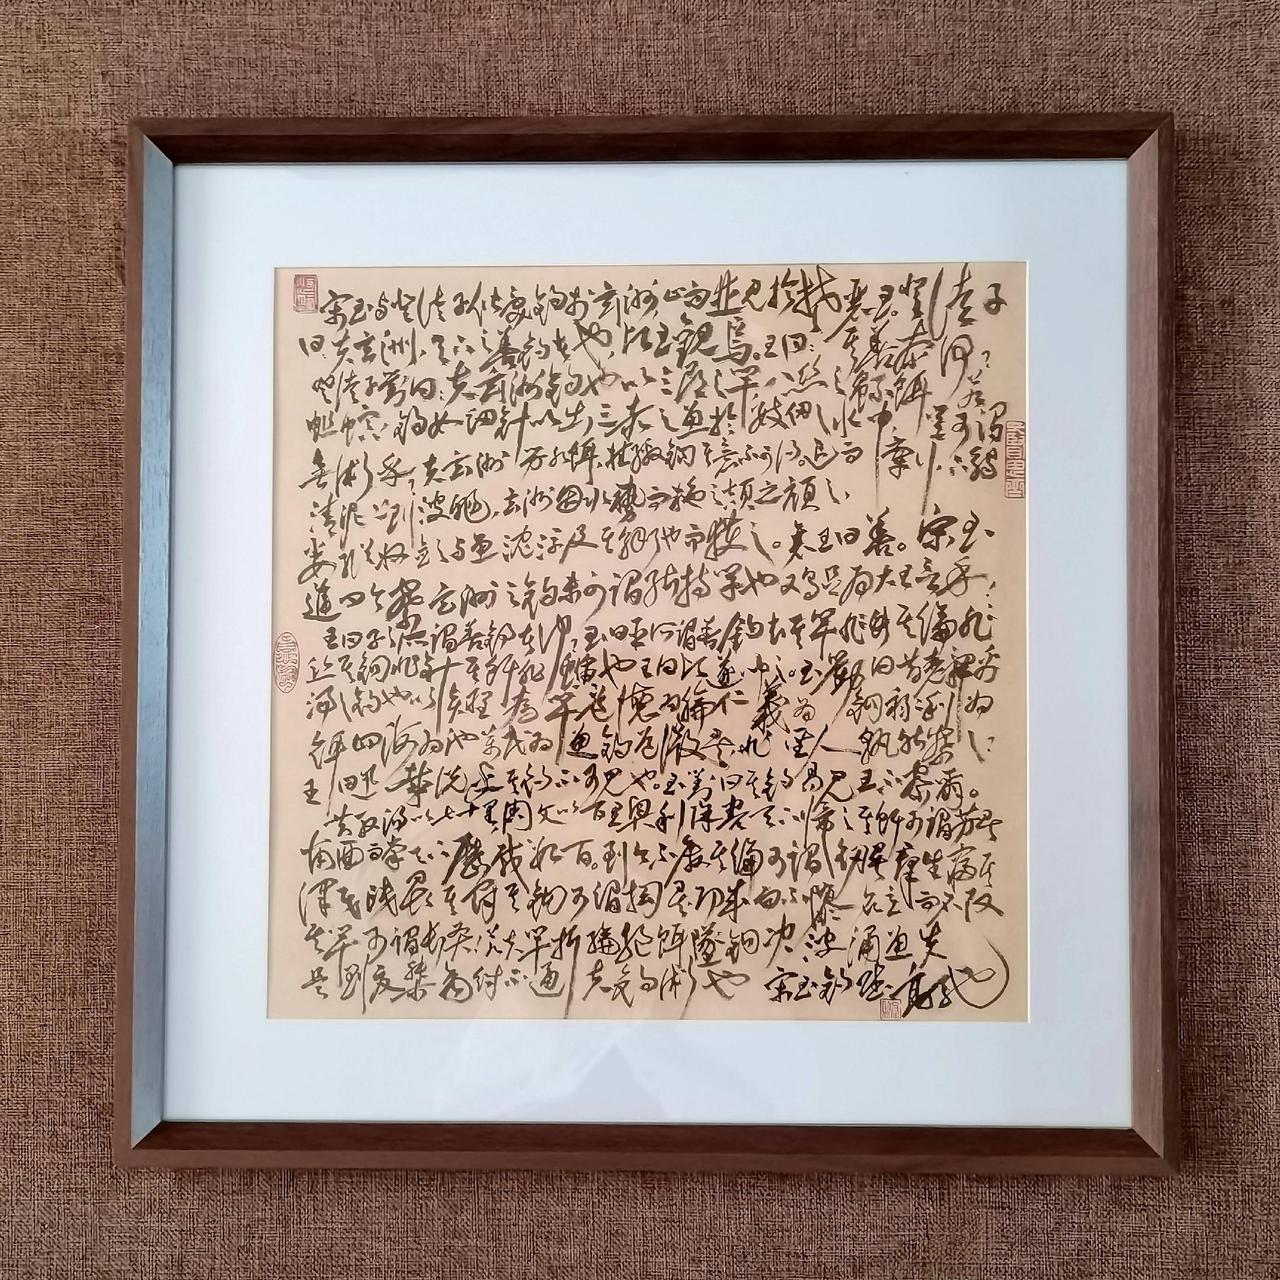 宋玉与登徒子偕受钓于玄洲止而並见於楚襄王。登徒子
曰夫玄洲天下之善钓者也愿王觀焉。王曰其善奈何
登徒子對曰夫玄洲钓也以三尋之竿八丝之線餌若
蛆螾钩如细针以出三赤之鱼於數仞之水中豈可谓
无術乎夫玄洲芳水餌挂缴钩其意不可得。退而牽行下觸
清泥上则波飏玄洲因水勢而施之颉之颃之
委纵收斂与鱼沈浮及其解弛也而獲之。襄王曰善。宋玉
進曰今察玄洲之钓未可謂能持竿也又烏足为大王言乎
王曰子所謂善钓者何玉曰臣所謂善钓者其竿非竹其綸非
丝其钩非针其餌非螾也王曰愿遂闻之。玉對曰昔堯舜禹
汤之钓也以贤聖為竿道德为綸仁義为钩祿利为
餌四海为池萬民为鱼钓道微矣非聖人孰能察之
王曰迅哉说乎其钓不可見也。玉對曰其钓易見王不察爾。
昔殷汤以七十里周文以百里興利除害天下归之其餌可謂芳矣
南面而掌天下歷载數百。到今不废其綸可謂纫矣群生寖其
澤民氓畏其罚其钩可謂拘矣功成而不隳名立而不改
其竿可謂強矣若夫竿折綸绝餌墜钩决波涌鱼失
是则夏桀商纣不通夫钓術也 宋玉钓赋